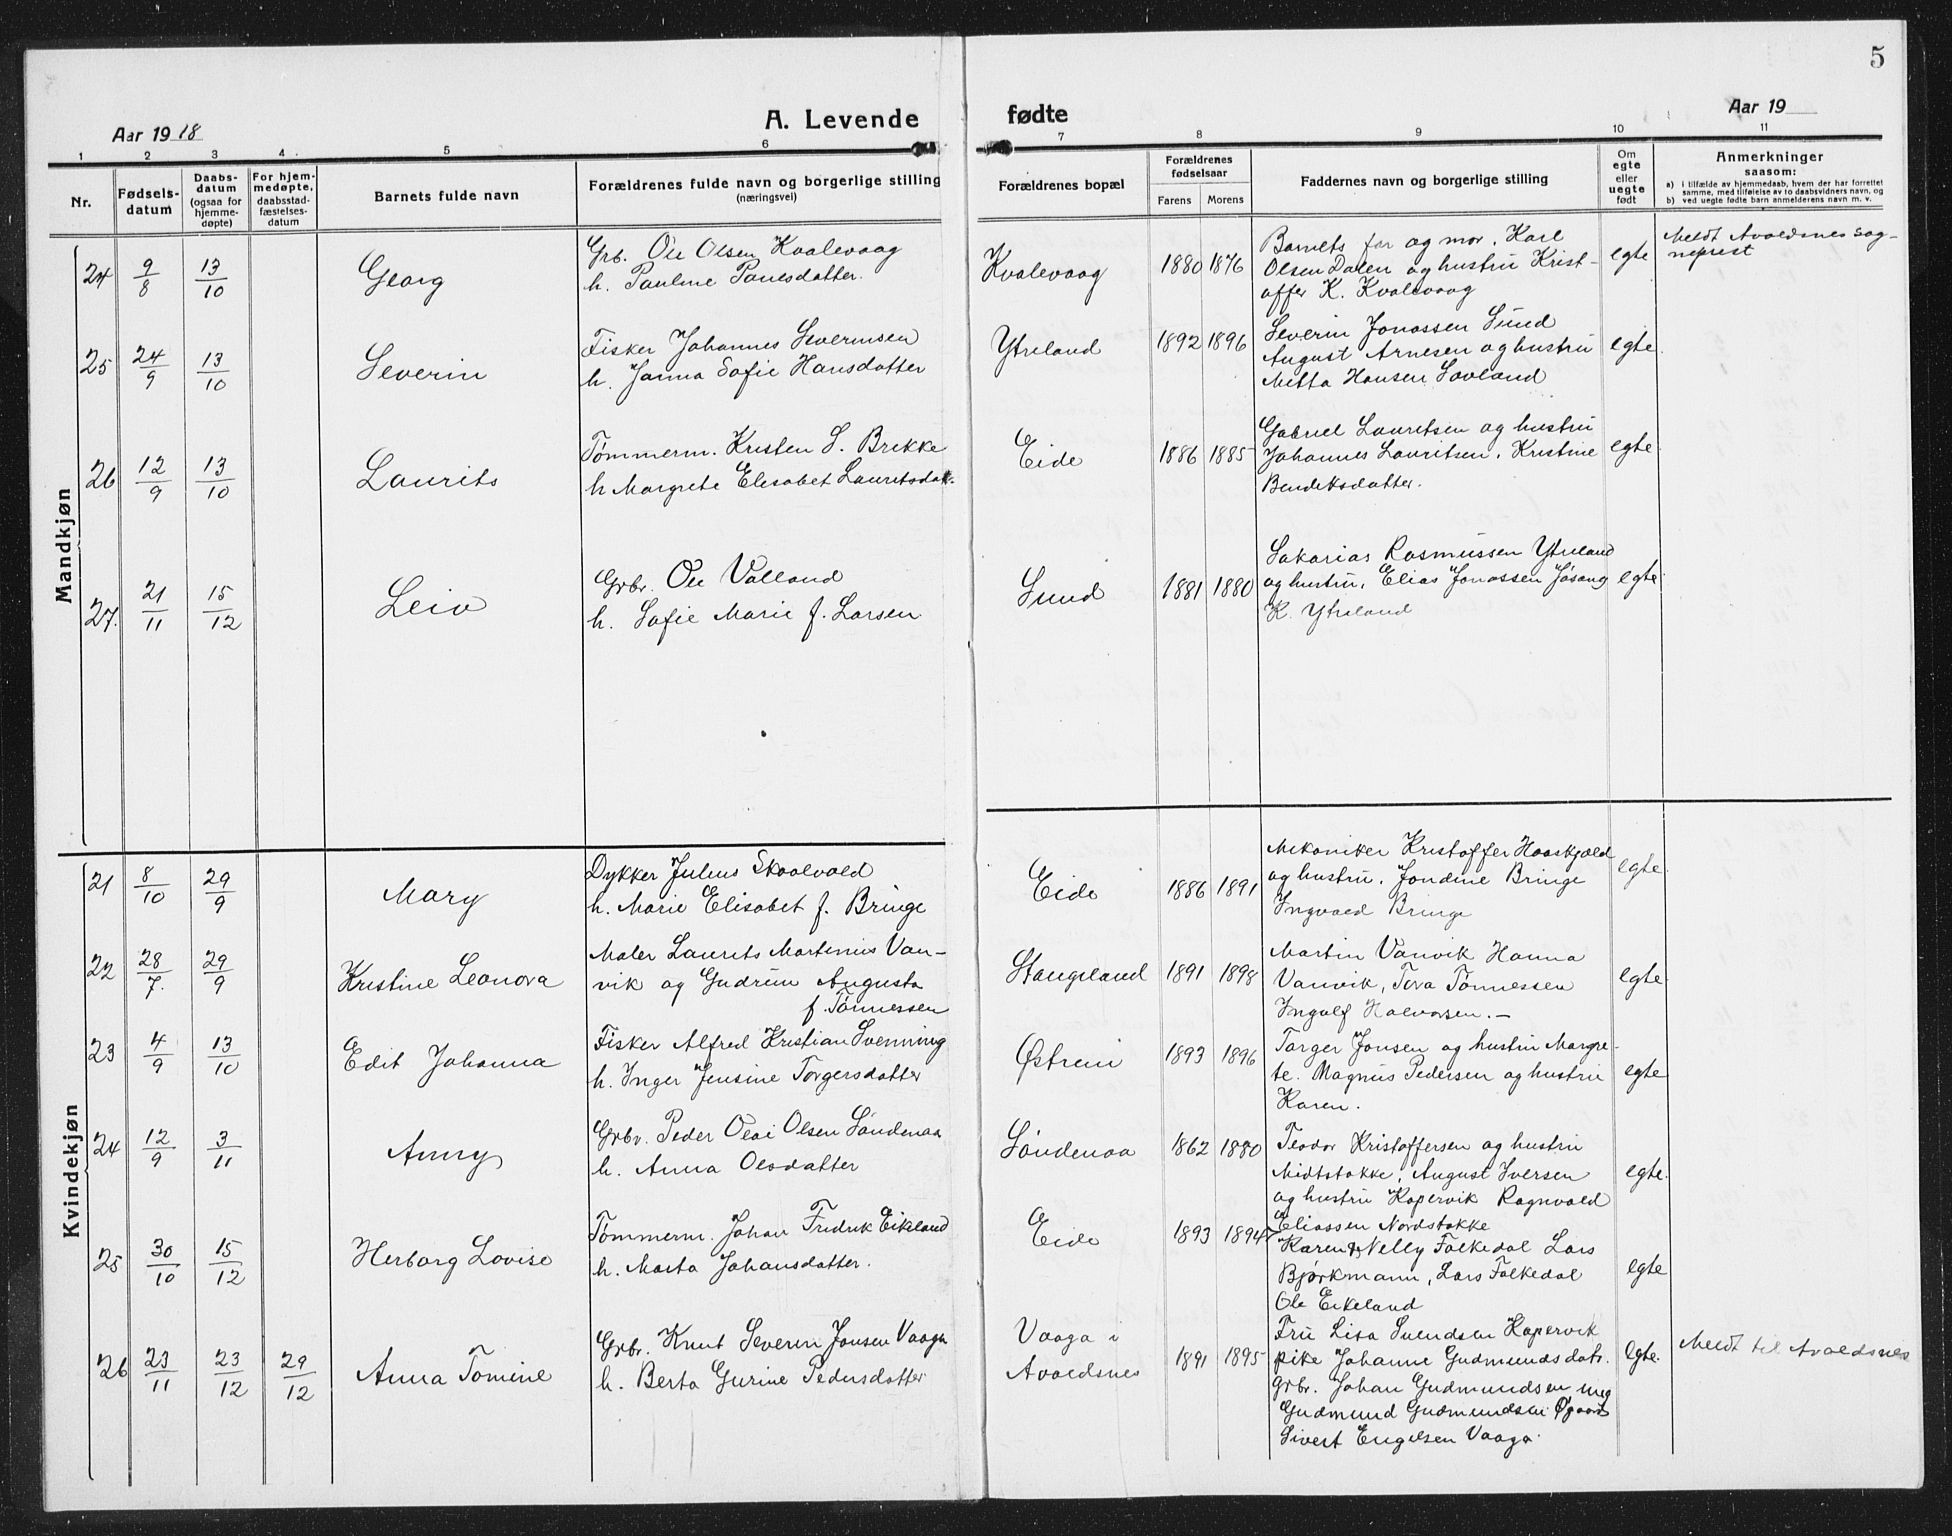 5
Aar 1918
A. Levende fødte
Aar 19
1 2 3 4 5 6 7 8 9 10 11
Nr.
Fødsels-
datum
Daabs-
datum
(ogsaa for
hjemme-
døpte)
For hjem-
medøpte,
daabsstad-
fæstelses-
datum
Barnets fulde navn
Forældrenes fulde navn og borgerlige stilling
(næringsvei)
Forældrenes bopæl
Forældrenes
fødselsaar
Farens Morens
Faddernes navn og borgerlige stilling
Om
egte
eller
uegte
født
Anmerkninger
saasom:
a) i tilfælde av hjemmedaab, hvem der har forrettet
samme, med tilføielse av to daabsvidners navn, og
b) ved uegte fødte barn anmelderens navn m. v.
Mandkjøn
24 9/8 13/10 Georg
Grb. Ole Olsen Kvalevaag
h. Pauline Paulsdatter.
Kvalevaag 1880 1876
Barnets far og mor. Karl
Olsen Dalen og hustru Krist-
offer K. Kvalevaag
egte
Meldt Avaldsnes sog-
neprest
25 24/9 13/10 Severin
Fisker Johannes Severinsen
h. Janna Sofie Hansdatter
Ytreland 1892 1896
Severin Jonassen Sund
August Arnesen og hustru
Metta Hansen Sovland
egte.
26 12/9 13/10 Laurits
Tømmerm. Kristen S. Brekke
h Margrete Elisabet Lauritsdatt.
Eide 1886 1885
Gabriel Lauritsen og hustru
Johannes Lauritsen. Kristine
Bendiksdatter.
egte
27. 21/11 15/12 Leiv
Grbr. Ole Valland
h. Sofie Marie f. Larsen
Sund 1881 1880
Sakarias Rasmussen Ytreland
og hustru, Elias Jonassen Jøsang
K. Ytreland
egte
Kvindekjøn
21 8/10 29/9 Mary
Dykker Julius Skaalvold
h. Marie Elisabet f. Bringe
Eide 1886 1891
Mekaniker Kristoffer Haaskjold
og hustru. Jondine Bringe
Ingvald Bringe
egte
22 28/7 29/9 Kristine Leonora
Maler Laurits Martinius Van-
vik og Gudrun Augusta
f. Tønnessen
Stangeland 1891 1898
Martin Vanvik Hanna
Vanvik, Tora Tønnessen
Ingolf Halvorsen. —
egte
23 4/9 13/10 Edit Johanna
Fisker Alfred Kristian Svenning
h. Inger Jensine Torgersdatter
Østrem 1893 1896
Torger Jonsen og hustru Margre-
te. Magnus Pedersen og hustru
Karen.
egte
24 12/9 3/11 Anny
Grbr. Peder Olai Olsen Søndenaa
h. Anna Olsdatter
Søndenaa 1862 1880
Teodor Kristoffersen og hustru
Midtstokke, August Iversen
og hustru Kopervik Ragnvald
Eliassen Nordstokke
egte.
25 30/10 15/12 Herborg Lovise
Tømmerm. Johan Fredrik Eikeland
h. Marta Johansdatter.
Eide 1893 1894
Karen & Nelly Falkedal Lars
Bjørkmann, Lars Falkedal
Ole Eikeland
egte
26 23/11 23/12 29/12 Anna Tomine
Grbr. Knut Severin Jonsen Vaaga
h. Berta Gurine Pedersdatter
Vaaga i
Avaldsnes 1891 1895
Fru Lisa Svendsen Kopervik
pike Johanne Gudmundsdatr.
grbr. Johan Gudmundsen ung
Gudmund Gudmundsen Øgaard
Sivert Engelsen Vaaga.
egte.
Meldt til Avaldsnes